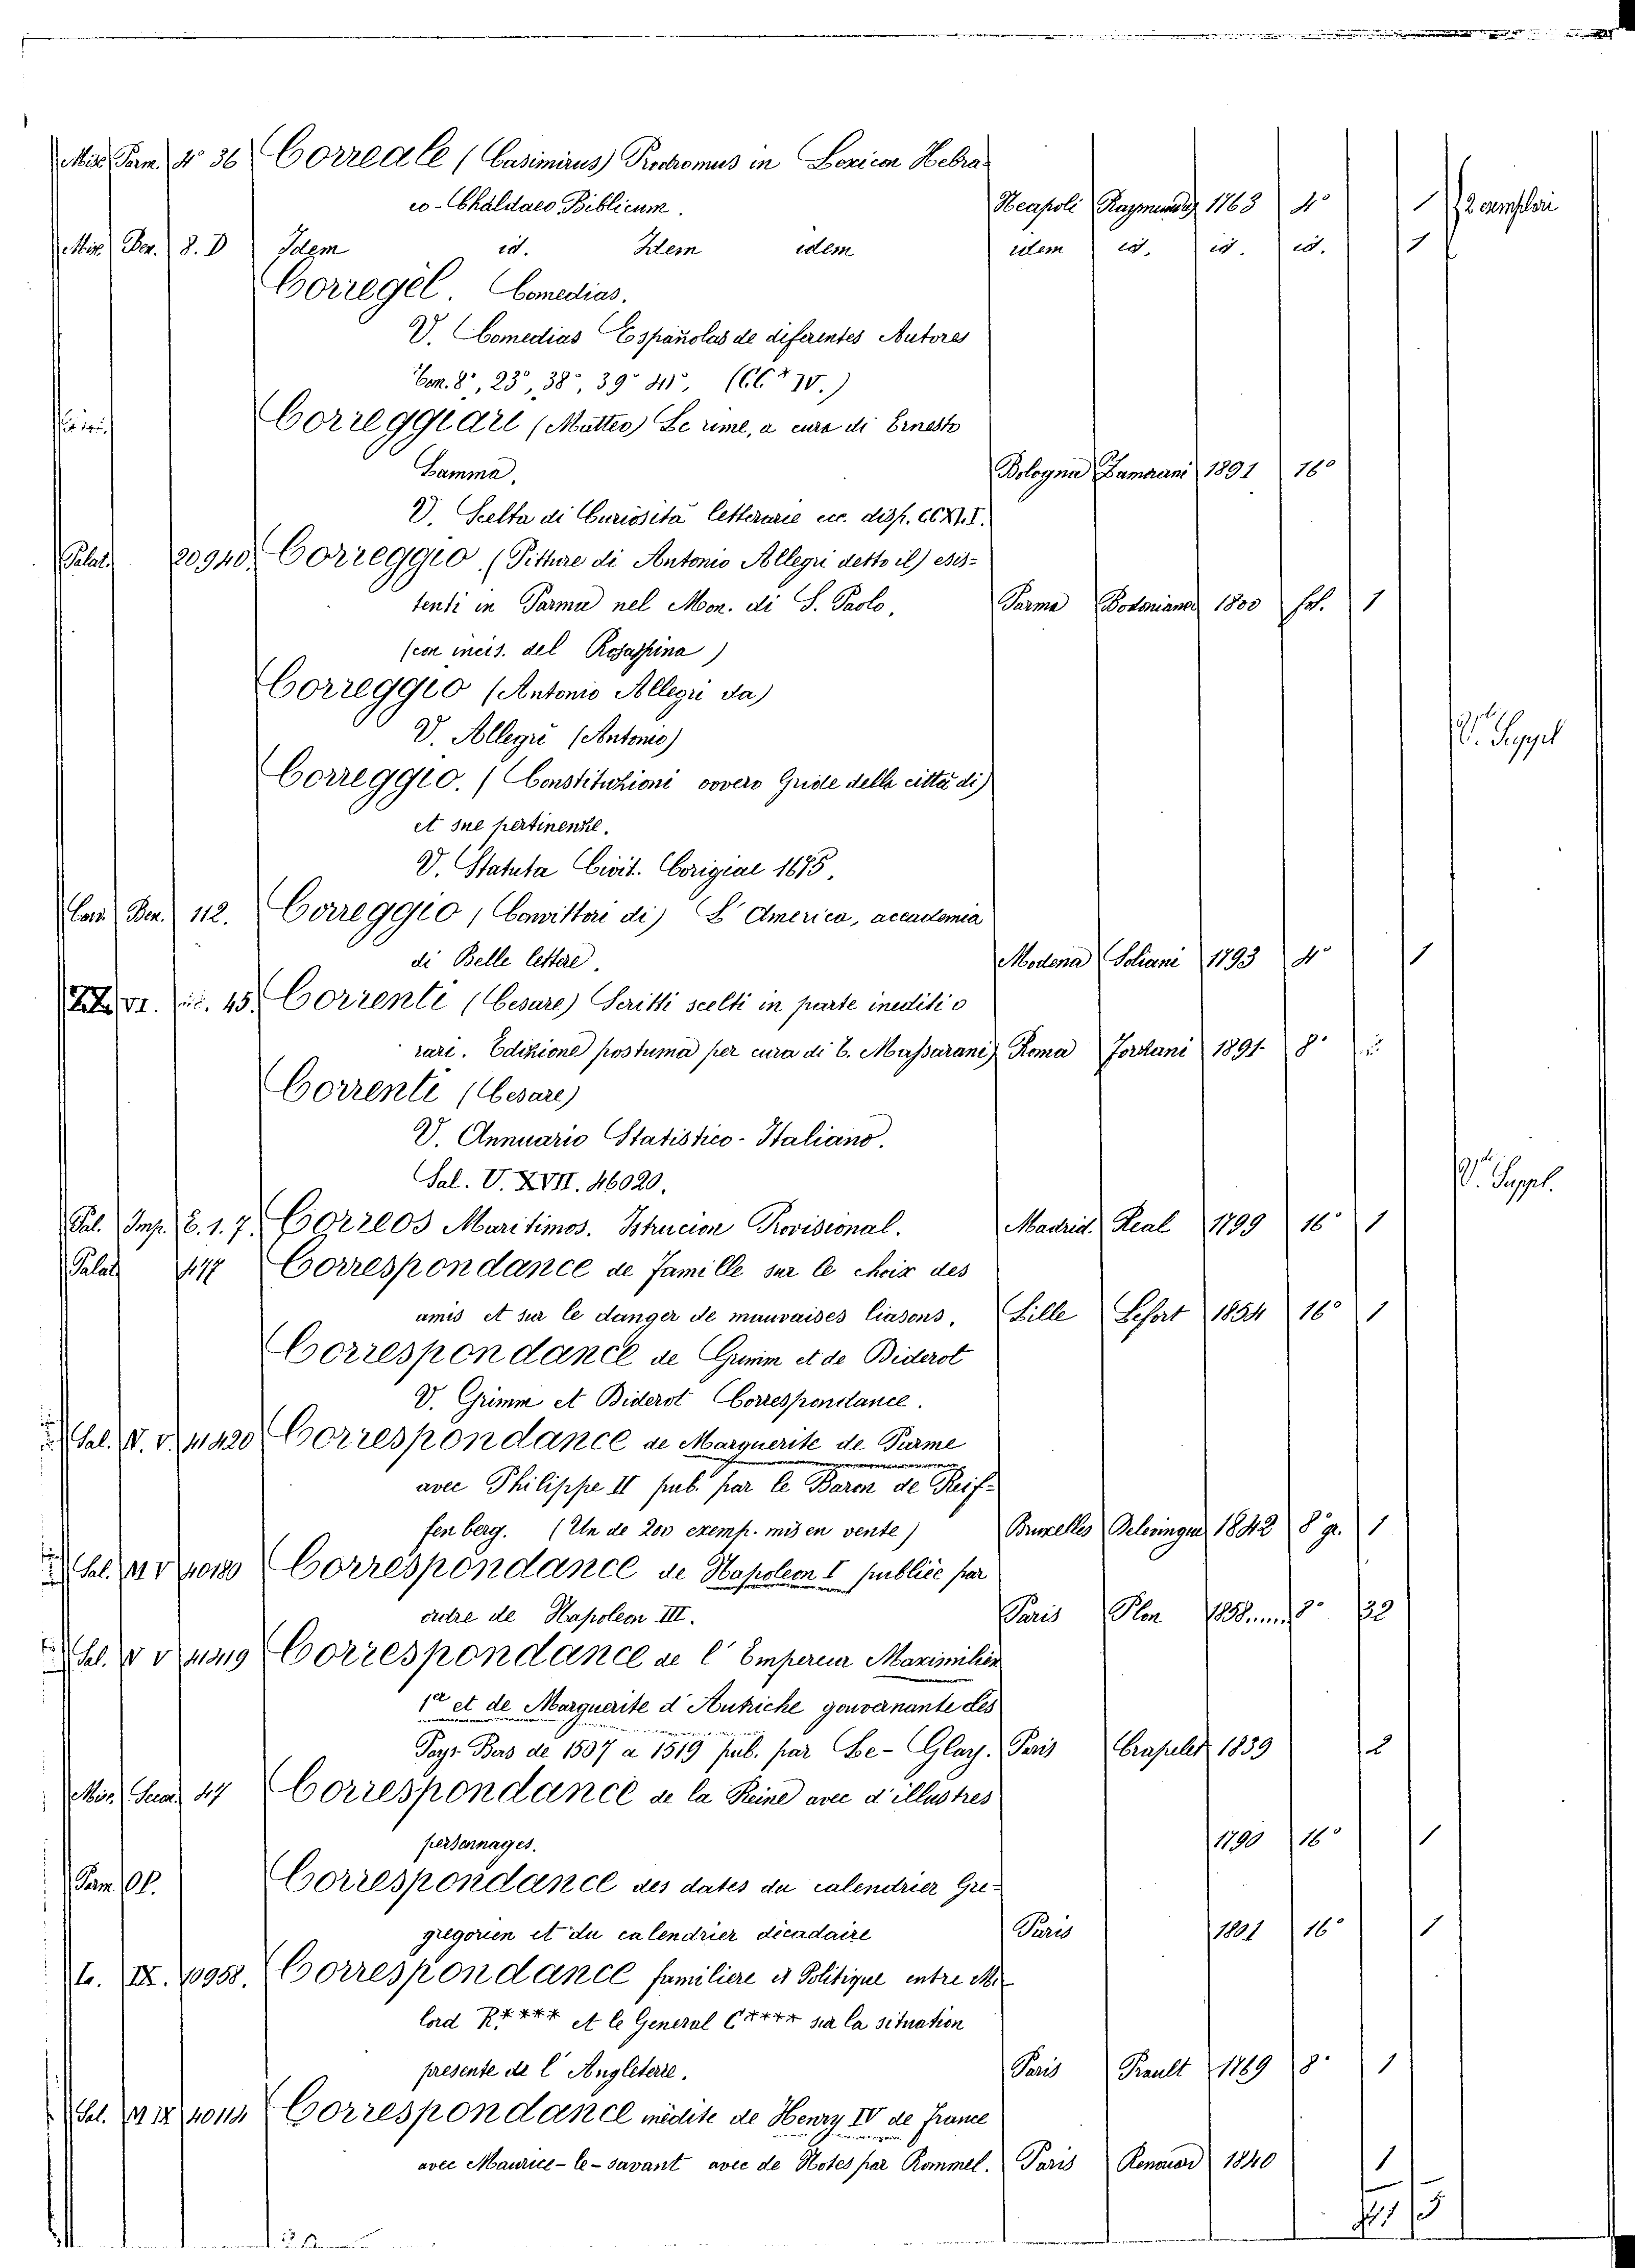 Misc. Parm. 4° 36 Correale (Casimirus) Prodromus in Lexicon Hebra-
eo-Chaldaeo Biblicum. Neapoli Raymundi 1763 4° 1 2 esemplari
Misc. Ber. 8. D Idem id. Idem idem idem id. id. id. 1
Corregel. Comedias.
V. Comedias Españolas de diferentes Autores
Tom. 8°, 23°, 38°, 39° 41°, (CC* IV.)
Correggiari (Matteo) Le rime, a cura di Ernesto
Lamma. Bologna 1891 16°
V. Scelta di Curiosità letterarie ecc. disp.
Palat. 20940 Correggio. (Pitture di Antonio Allegri detto il) esis-
tenti in Parma nel Mon. di S. Paolo, Parma Bodoniano 1800 fol. 1
(con incis. del Rosaspina)
Correggio (Antonio Allegri da)
V. Allegri (Antonio) V. Suppl
Correggio. (Constitutioni ovvero Gride della città di)
et sue pertinenze.
V. Statuta Civit. Corigiae 1675.
Ber. 112. Correggio, (Cavittori di) L'America, accademia
di Belle lettere. Modena Soliani 1793 4° 1
VI. 45. Correnti (Cesare) Scritti scelti in parte inediti o
rari. Edizione postuma per cura di C. Massarani) Roma Forzani 1891- 8°
Correnti (Cesare)
V. Annuario Statistico-Italiano.
Sal. V. XVII. 46020. V. Suppl.
Pal. Imp. C. 1. 7. Correos Maritimos. Istrucion Provisional. Madrid. Real 1799 16° 1
Palat. 477 Correspondance de famille sur le choix des
amis et sur le danger de mauvaises liasons. Lille Lefort 1854 16° 1
Correspondance de Grimm et de Diderot
V. Grimm et Diderot Correspondance.
Sal. V. V. 41420 Correspondance de Marguerite de Parme
avec Philippe II pub. par le Baron de Reif-
fenberg. (Un de 200 exemp. mis en vente) Bruxelles Delevingne 1842 8° gr. 1
Sal. M V 40180 Correspondance de Napoleon I publiée par
ordre de Napoleon III. Paris Plon 1858..... 8° 32
Sal. V V 41419 Correspondance de l'Empereur Maximilien
1er et de Marguerite d'Autriche gouvernante des
Pays-Bas de 1507 a 1519 pub. par Le-Glay. Paris Crapelet 1839 2
Misc. 47 Correspondance de la Reine avec d'illustres
personnages. 1790 16° 1
Parm. Correspondance des dates du calendrier Gre-
gregorien et du calendrier décadaire Paris 1801 16° 1
L. IX. 10958. Correspondance familiere et Politique entre Mi-
lord R**** et le General C**** sur la situation
presente de l'Angleterre. Paris Prault 1769 8° 1
Sal. M IX 40114 Correspondance inédite de Henry IV de France
avec Maurice-le-savant avec de Notes par Rommel. Paris Renouard 1840 1